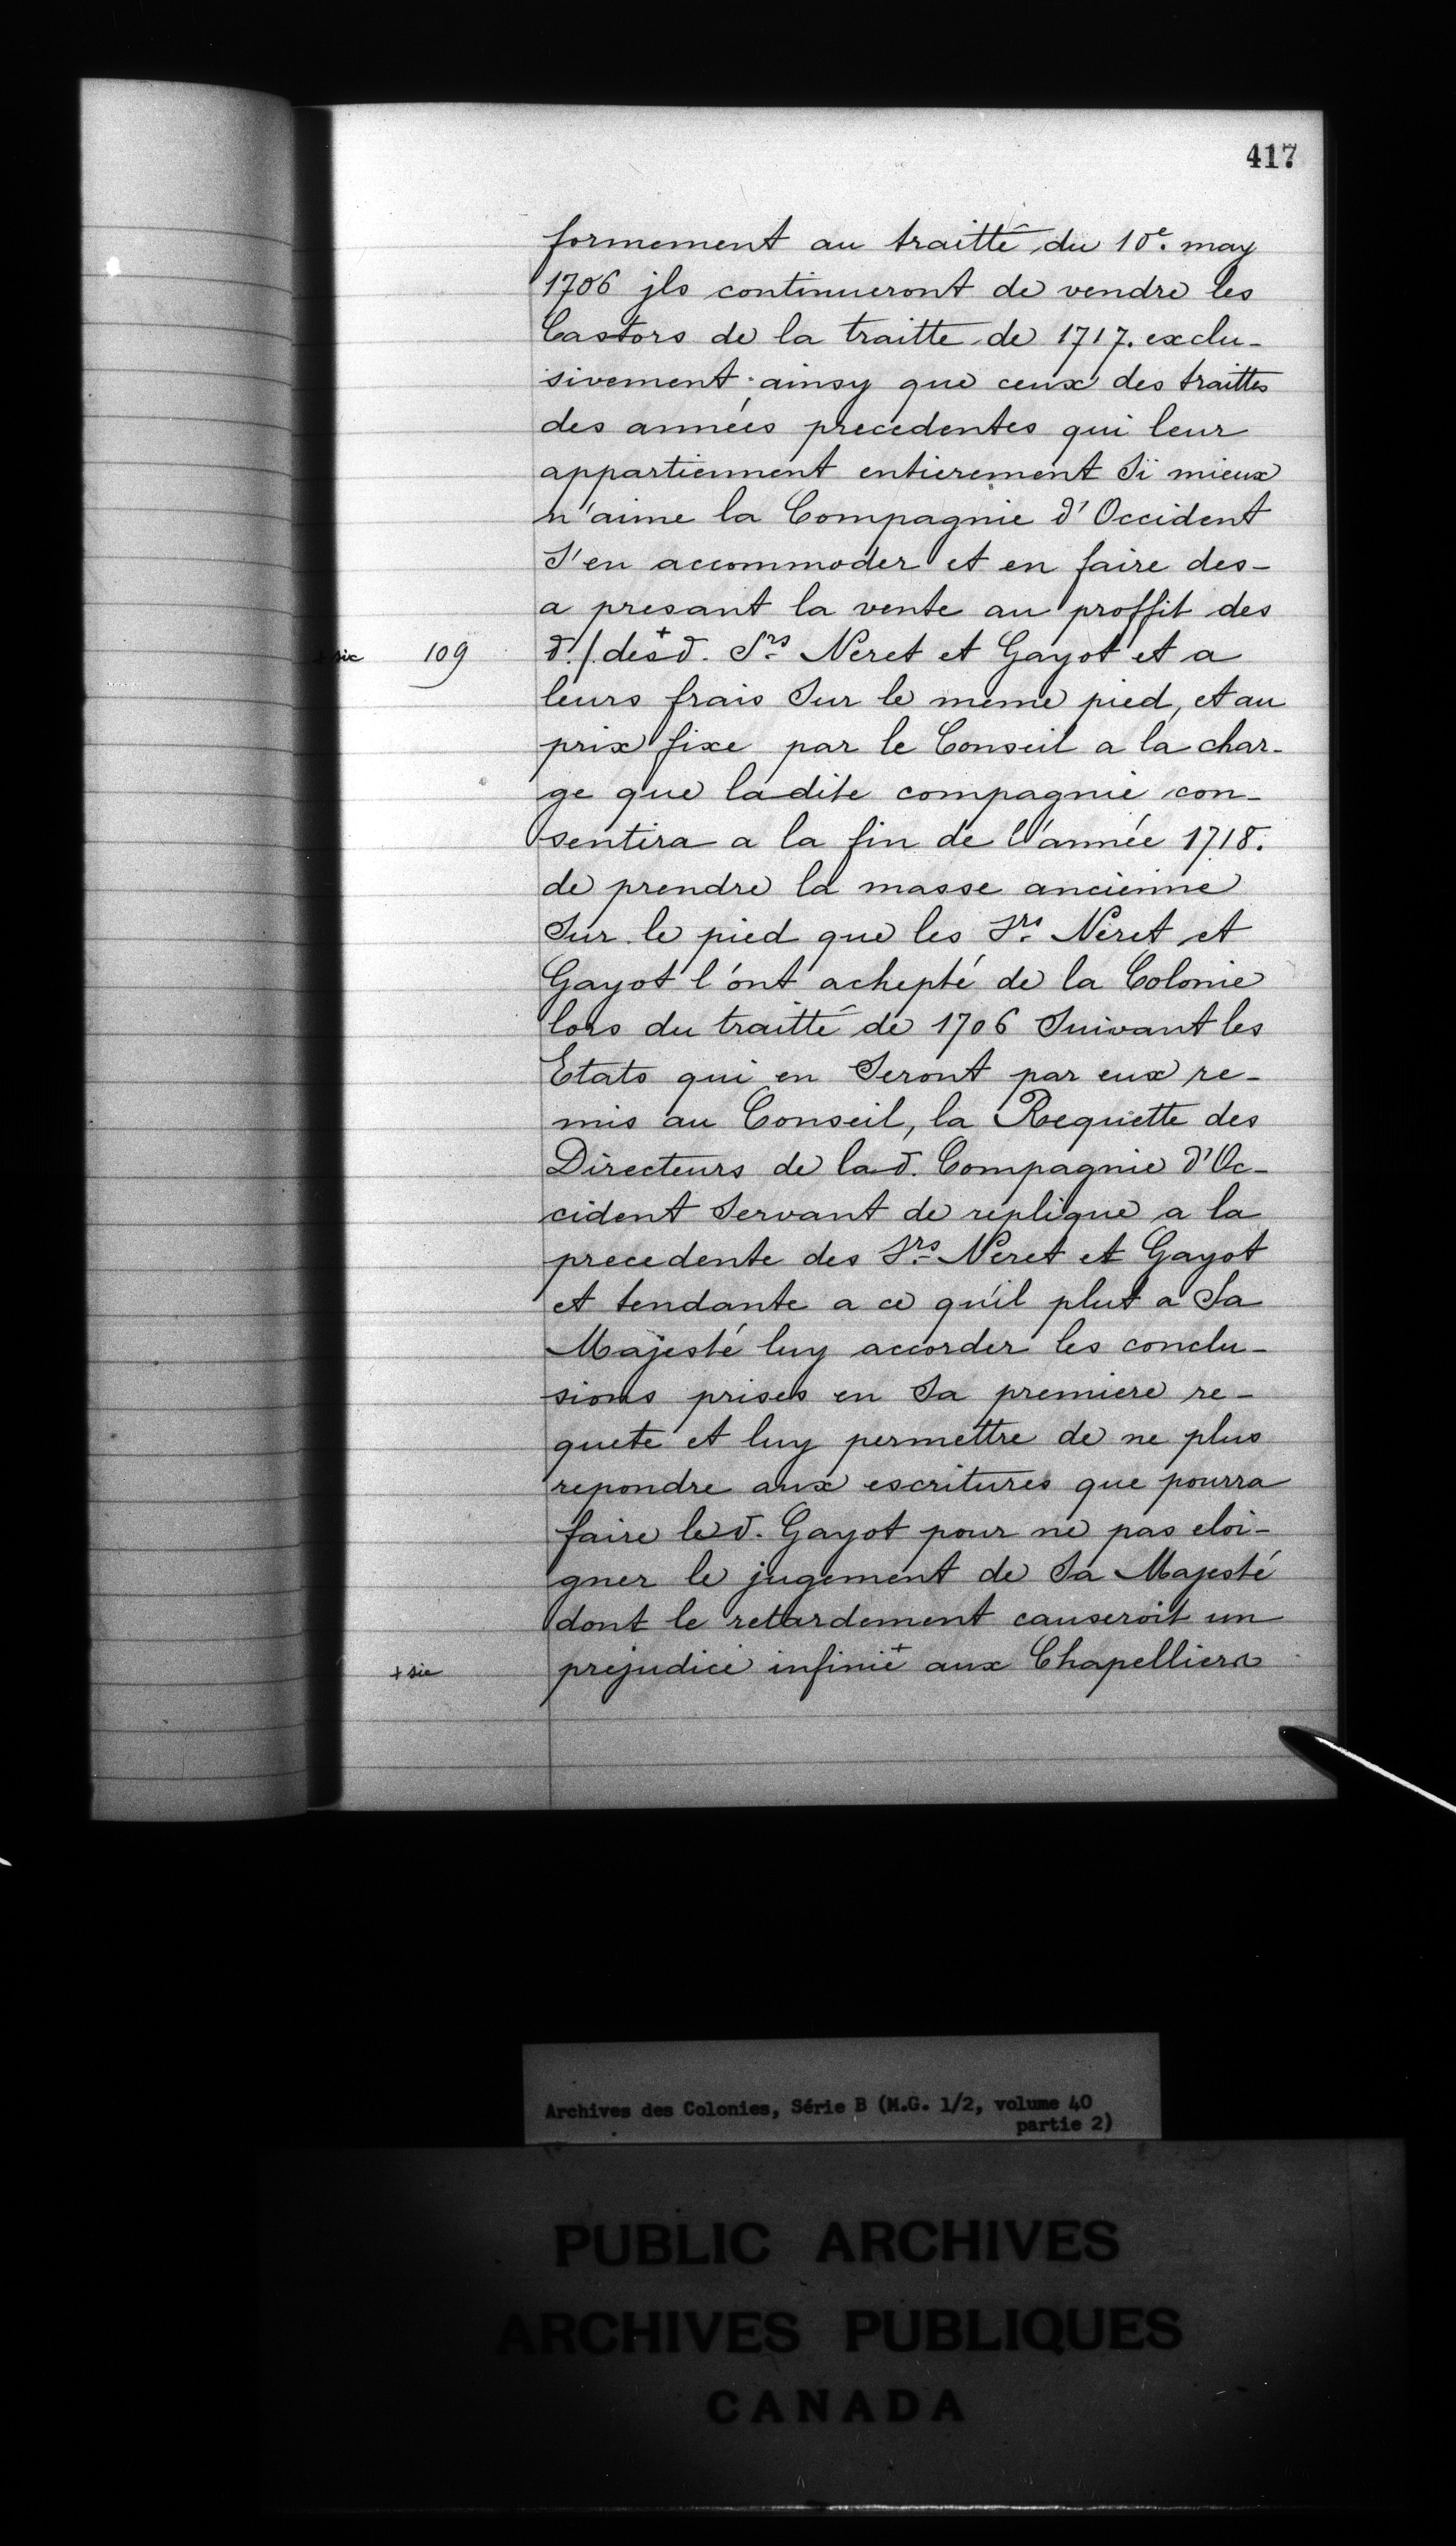 417
formement au traitté du 10e. may
1706 jls continueront de vendre les
Castors de la traitte de 1717. exclu-
sivement ainsy que ceux des traittes
des années precedentes qui leur
appartiennent entierement Si mieux
n'aime la Compagnie d'Occident
S'en accommoder et en faire des-
a presant la vente au proffit des
+ sic 109 d. /. des+ d. Srs Neret et Gayot et a
leurs frais Sur le meme pied, et au
prix fixe par le Conseil a la char-
ge que ladite compagnie con-
sentira a la fin de l'année 1718.
de prendre la masse ancienne
Sur le pied que les Srs Neret et
Gayot l'ont achepté de la Colonie
lors du traitté de 1706 Suivant les
Etats qui en Seront par eux re-
mis au Conseil, la Requette des
Directeurs de lad. Compagnie d'Oc-
cident Servant de replique a la
precedente des Srs Neret et Gayot
et tendante a ce qu'il plut a Sa
Majesté luy accorder les conclu-
sions prises en Sa premiere re-
quete et luy permettre de ne plus
repondre aux escritures que pourra
faire led. Gayot pour ne pas eloi-
gner le jugement de Sa Majesté
dont le retardement causeroit un
+ sic prejudice infinie+ aux Chapelliers
Archives des Colonies, Série B (M.G. 1/2, volume 40
partie 2)
PUBLIC ARCHIVES
ARCHIVES PUBLIQUES
CANADA